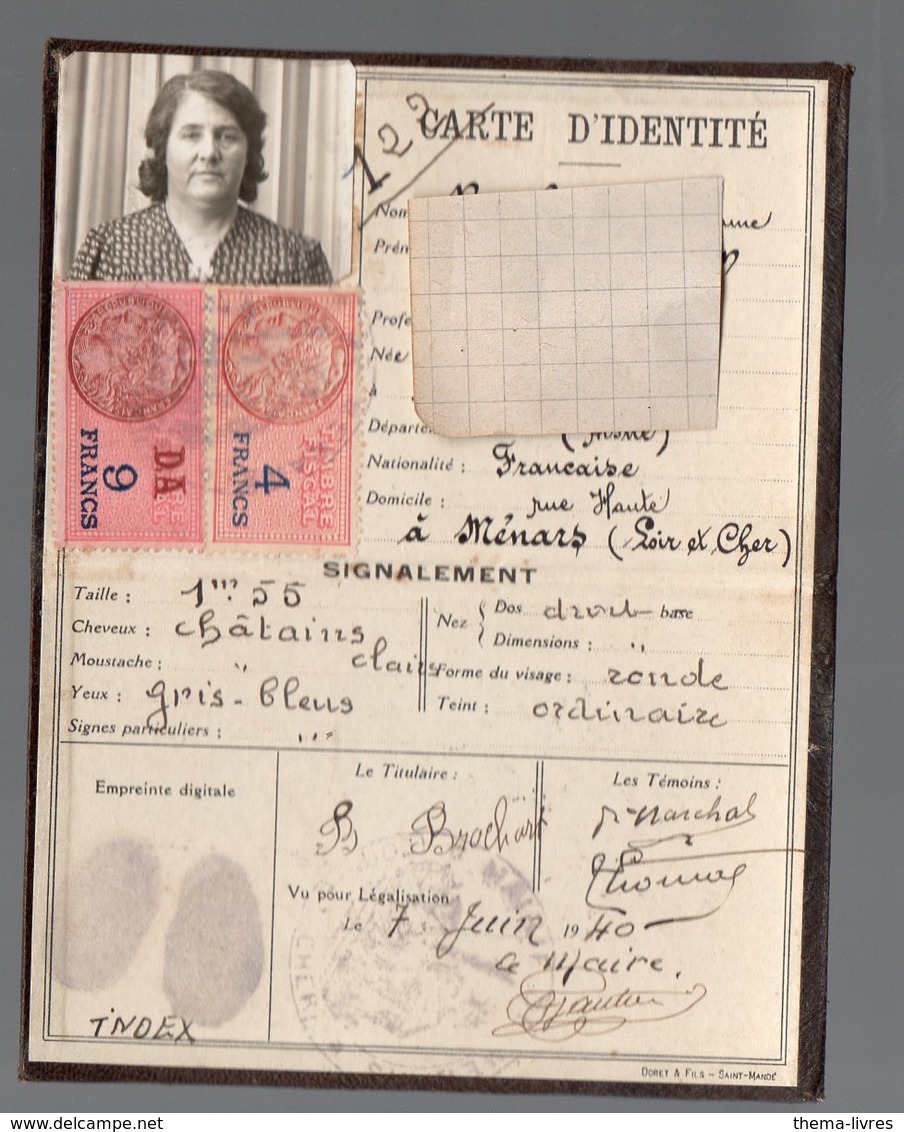 122
CARTE D'IDENTITÉ
Nom
Prén
Profe
Née
à
Départe (Aisne)
Nationalité : Francaise
Domicile : rue Haute
à Ménars (Loir et Cher)
RÉPUBLIQUE
FRANÇAISE
9
FRANCS
DA
4
FRANCS
TIMBRE
FISCAL
SIGNALEMENT
Taille : 1m 55
Cheveux : châtains
Moustache : " clairs
Yeux : gris-bleus
Signes particuliers : "
Nez { Dos droit base
Dimensions : "
Forme du visage : ronde
Teint : ordinaire
Empreinte digitale
INDEX
Le Titulaire :
B Brochart
Les Témoins :
Marchal
Thomas
Vu pour Légalisation :
Le 7 Juin 1940
Le Maire,
DORET & FILS – SAINT-MANDÉ
thema-livres / delcampe.net